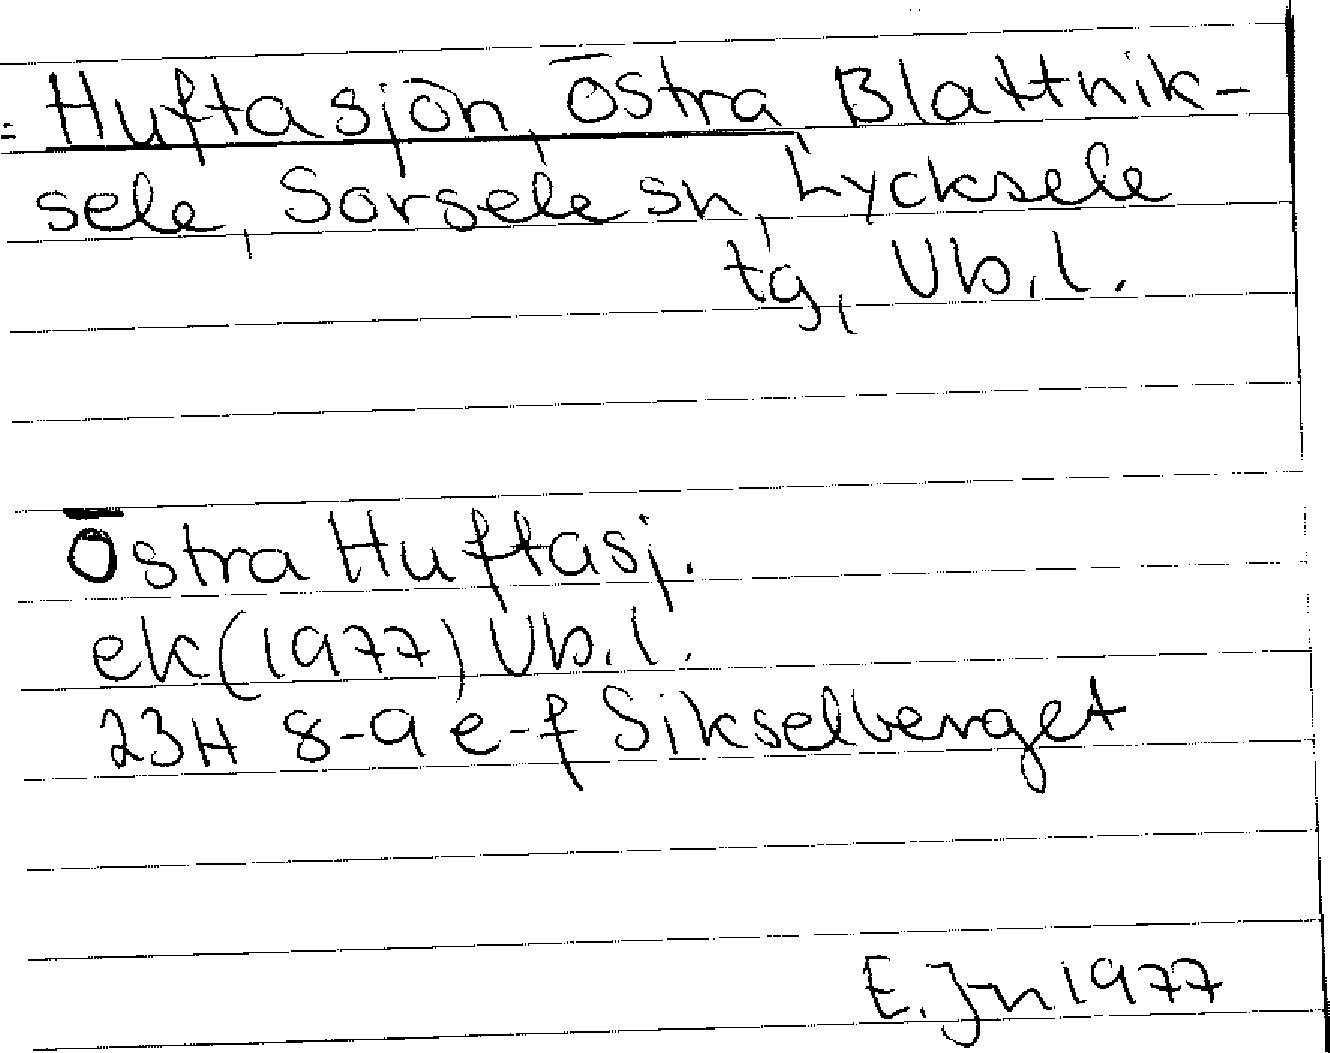 Huftasjön, Östra Blattnik-
sele, Sorsele sn, Lycksele
tg, Vb.l.
Östra Huftasj.
ek (1977) Vb.l.
23H 8-9 e-f Sikselberget
E. Jn 1977